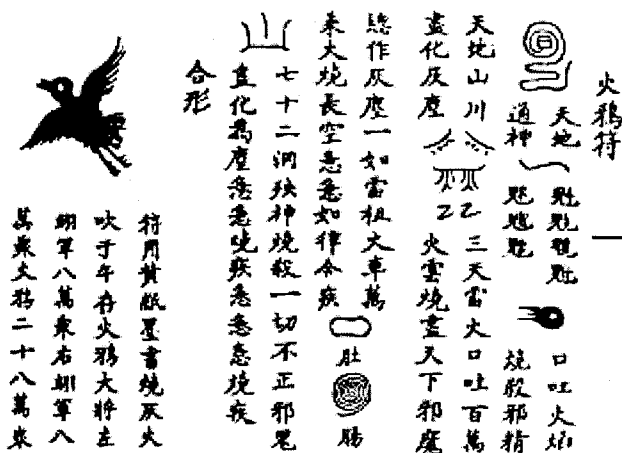 火鴉符
天地
口吐火焰
通神
燒殺邪精
天地山川
三天雷火口吐百萬
盡化灰塵
火雲燒盡天下邪魔
總作灰塵一如雷祖大車萬
來大燒長空急急如律令疾
肚
腸
七十二洞殃神燒殺一切不正邪鬼
盡化爲塵急急燒疾急急急燒疾
合形
符用黃紙墨書燒灰火
吹于午存火鴉大將左
翅軍八萬衆右翅軍八
萬衆火鴉二十八萬衆